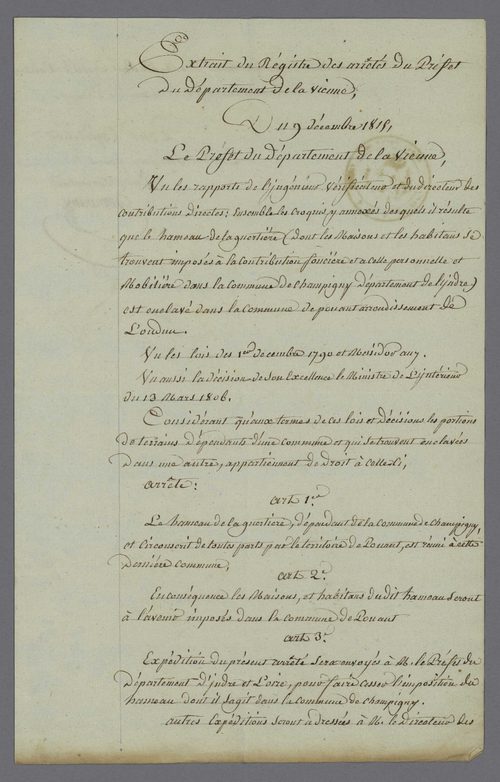 Extrait du Régistre des arrêtés du Préfet
du département de la vienne,
Du 9 décembre 1818,
Le Préfet du département de la vienne,
Vu les rapports de l'ingénieur vérificateur et du directeur des
contributions directes; ensemble les croquis y annexés desquels il résulte
que le hameau de la quortière (dont les Maisons et les habitans se
trouvent imposés à la contribution foncière et a celle personnelle et
Mobilière dans la commune de champigny département de l'jndre)
est enclavé dans la commune de pouant arrondissement de
Loudun.
Vu les lois des 1er decembre 1790 et Messidor an 7.
Vu aussi la décision de son Excellence le Ministre de L'jntérieur
du 13 Mars 1806.
Considérant qu'aux termes de ces lois et décisions les portions
de terrains dépendants d'une commune et qui se trouvent enclavées
dans une autre, appartiennent de droit à celle-ci,
arrête:
art 1er
Le hameau de la quortière, dépendant de la commune de champigny,
et circonscrit de toutes parts par le territoire de Pouant, est réuni à cette
dernière commune,
art 2e
En conséquence les Maisons, et habitans dudit hameau seront
à l'avenir imposés dans la commune de Pouant
art 3e
Expédition du présent arrêté sera envoyée à M. le Prefet du
département d'jndre et Loire, pour faire cesser l'imposition du
hameau dont il s'agit dans la commune de champigny.
autres Expéditions seront adressées à M. le directeur des